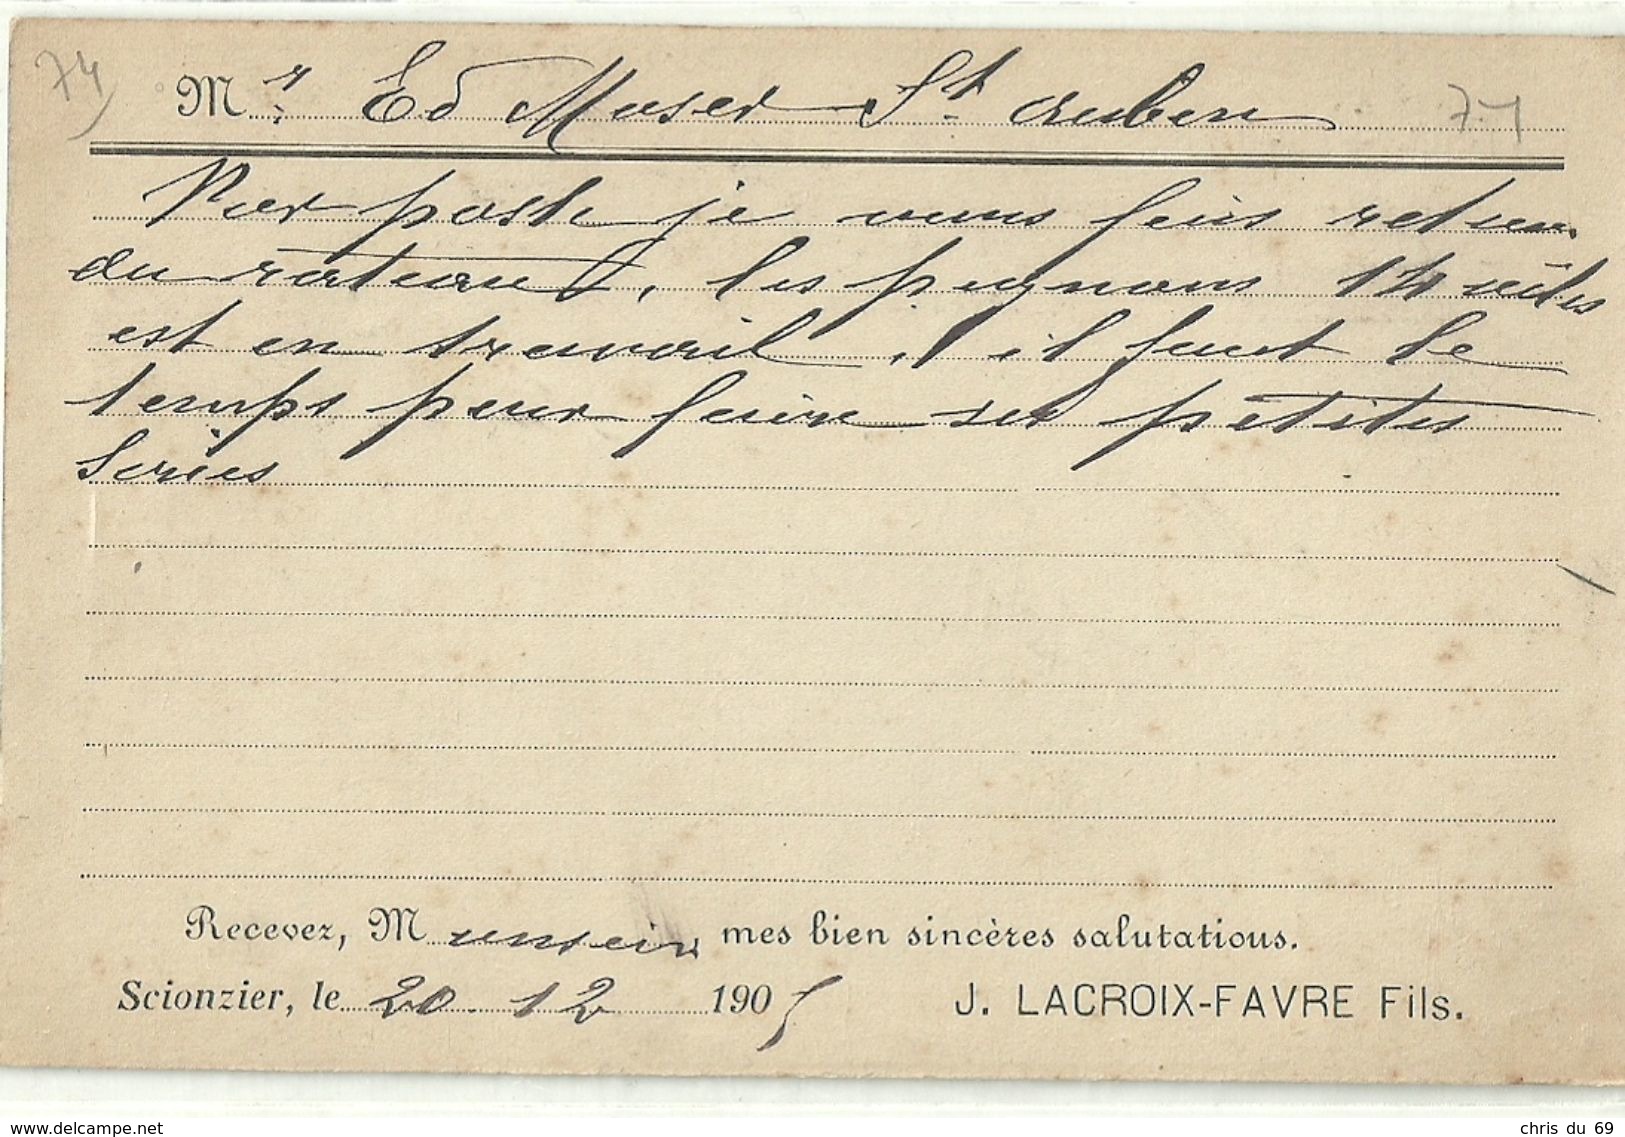 74
Mr. Ed Moser St. Auben 74
Par poste je vous fais retour
du rateau, les pignons 14 ailes
est en travail, il faut le
temps pour faire ses petites
series
Recevez, Monsieur, mes bien sincères salutations.
Scionzier, le 20.12 1905 J. LACROIX-FAVRE Fils.
www.delcampe.net chris du 69